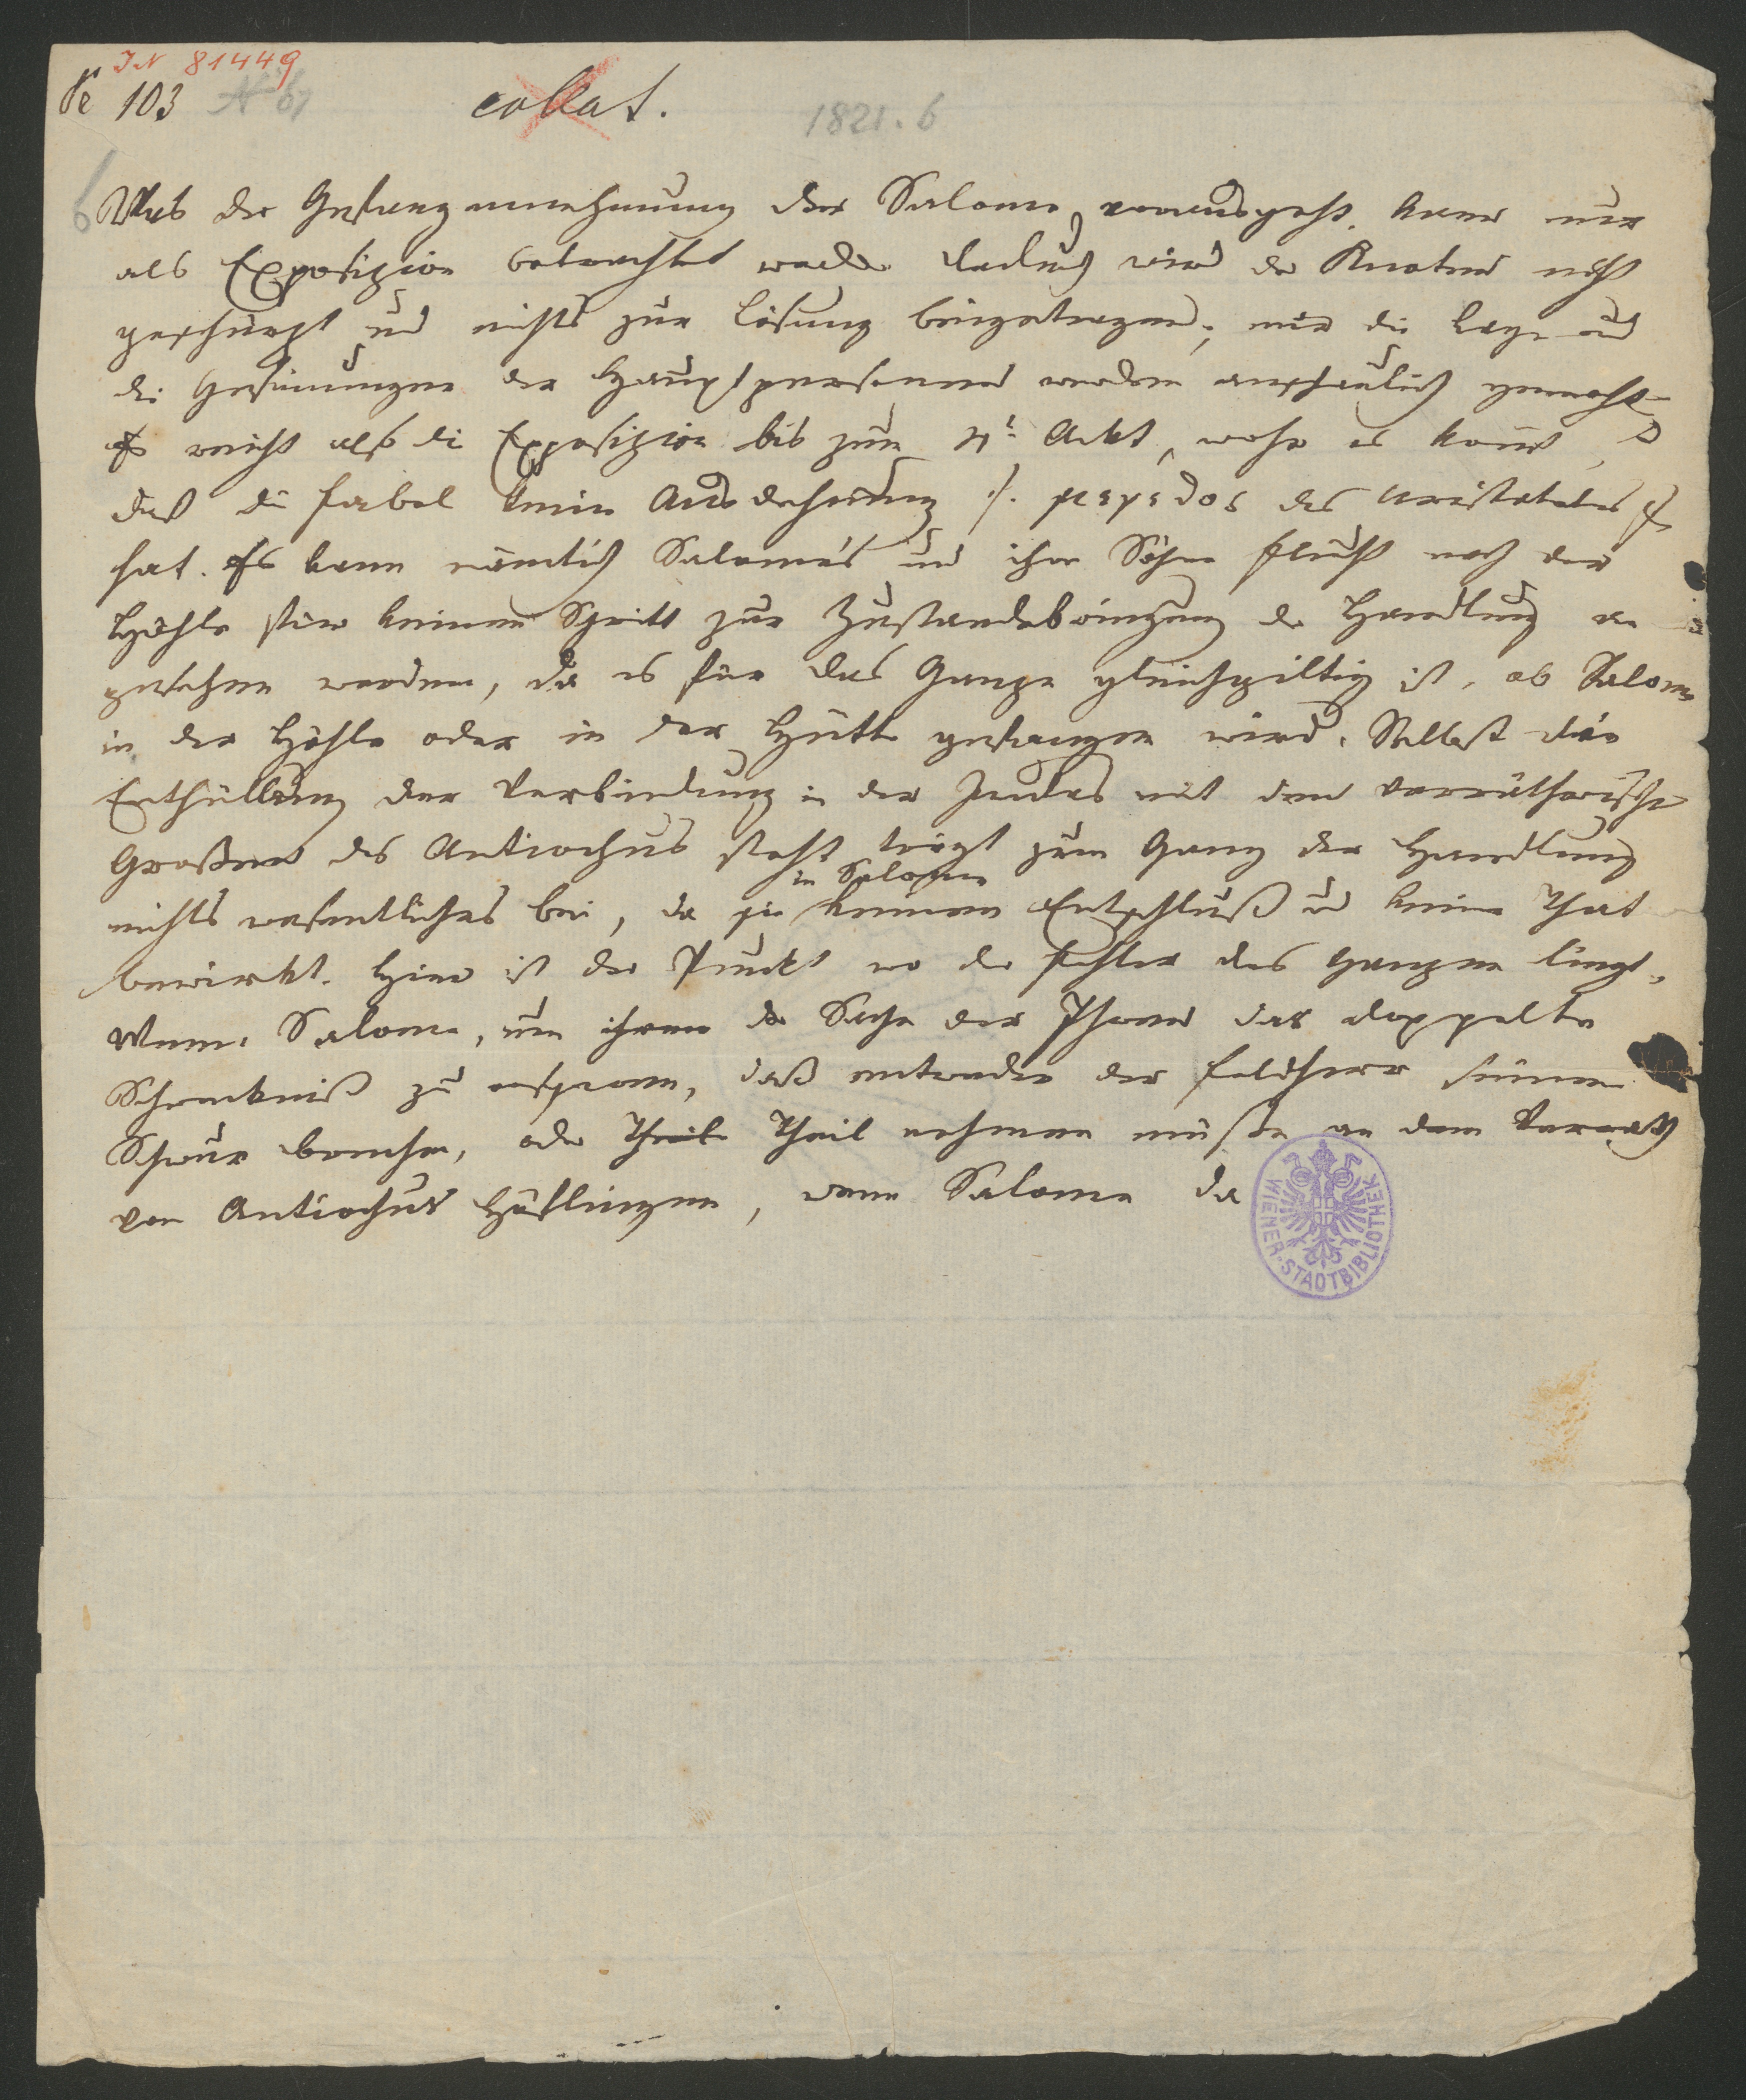 IN 81449
103 N 61
collat.
1821. 6
6 Was der Gefangennehmung der Salome vorausgeht, kann nur
als Exposizion betrachtet werden dadurch wird der Knoten nicht
geschürzt und nichts zur Lösung beigetragen; nur die Lage und
die Gesinnungen der Hauptpersonen werden anschaulich gemacht
Es reicht also die Exposizion bis zum Akt, woher es kommt,
daß die Fabel keine Ausdehnung /: μεγεθος des Aristoteles :/
hat. Es kann nämlich Salome's und ihrer Söhne Flucht nach der
Höhle für keinen Schritt zur Zustandebringung der Handlung an
gesehen werden, da es für das Ganze gleichgiltig ist, ob Salome
in der Höhle oder in der Hütte gefangen wird. Selbst die
Enthüllung der Verbindung in der Judas mit den verrätherischen
Großen des Antiochus steht trägt zum Gang der Handlung
in Salome
nichts wesentliches bei, da sie keinen Entschluß und keine That
bewirkt. Hier ist der Punkt wo der Fehler des Ganzen liegt.
Wenn Salome, um ihrem die Sache der Ihren das doppelte
Schreckniß zu ersparen, daß entweder der Feldherr seinen
Schwur brechen, oder Theil Theil nehmen müßte an dem Verrath
von Antiochus Höflingen, wenn Salome da
WIENER-STADTBIBLIOTHEK